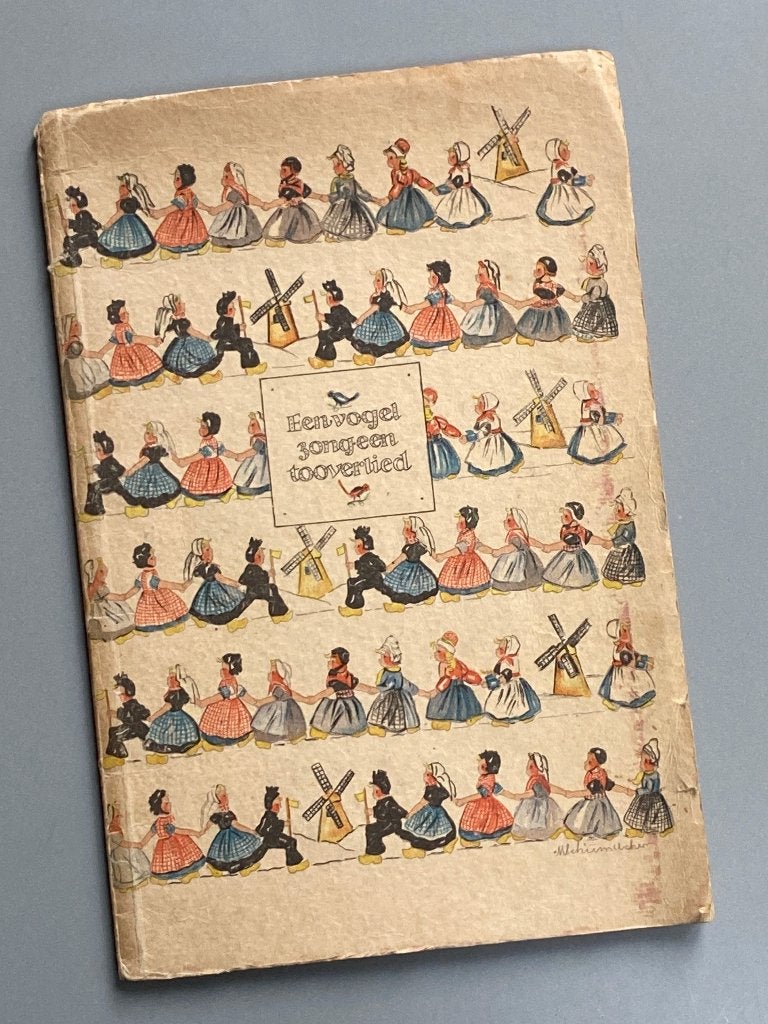 Een vogel
zong een
tooverlied